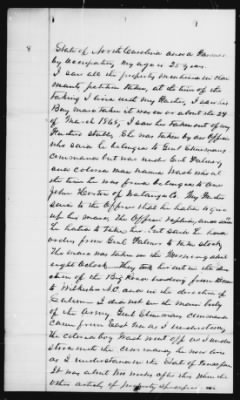 8
State of North Carolina and a Farmer
by occupation my age is 25 years.
I saw all the property mentioned in claimants
petition taken, at the time of the
taking I lived with my Father, I saw his
Bay mare taken it was on or about the 28
of March 1865, I saw her taken out of my
Fathers stable She was taken by an Officer
who said he belonged to Genl
command but was under Genl Palmer,
and colored man named Wash who at
the time he was found belonged to one
John Horton of Watauga Co. My Father
said to the Officer that he hated to give
up his mare, The Officer replied, and said
he hated to take her, but said he had
orders from Genl Palmer to take stock,
The mare was taken in the Morning about
eight Oclock They took her out in the direction
of the Big Road leading from Boone
to Wilkesboro N.C. and in the direction of
I did not see the main body
of the Army, Genl command
came from East Tenn as I understood,
the colored boy Wash went off as I understood
with the command, he now lives
as I understand in the State of Tennessee
It was about two weeks after this when the
other articles of property